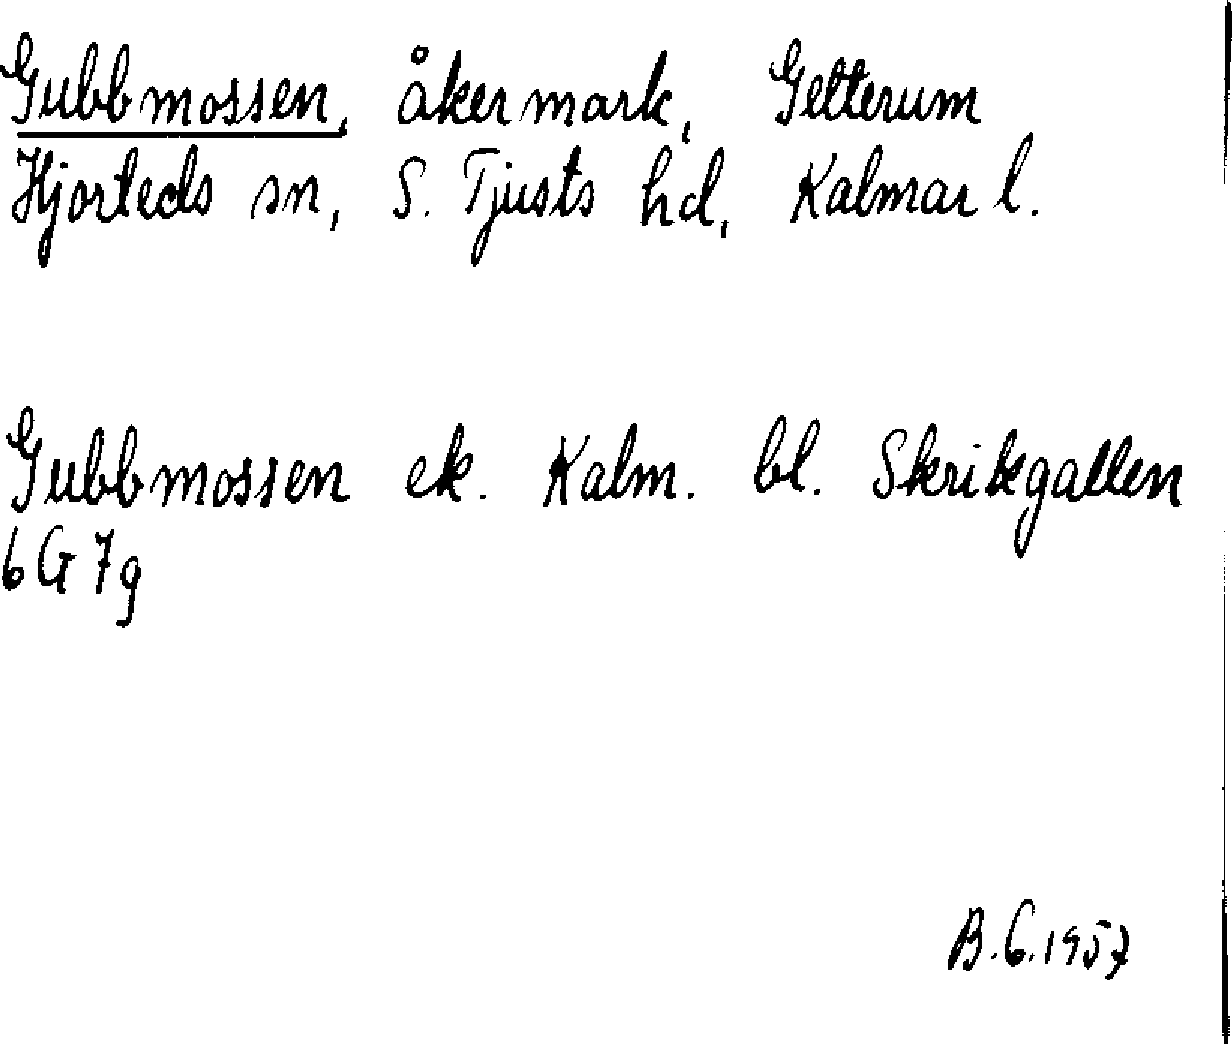 Gubbmossen, åkermark, Getterum
Hjorteds sn, S. Tjusts hd, Kalmar l.
Gubbmossen ek. Kalm. bl. Skrikgallen
6G7g
B.G.1957